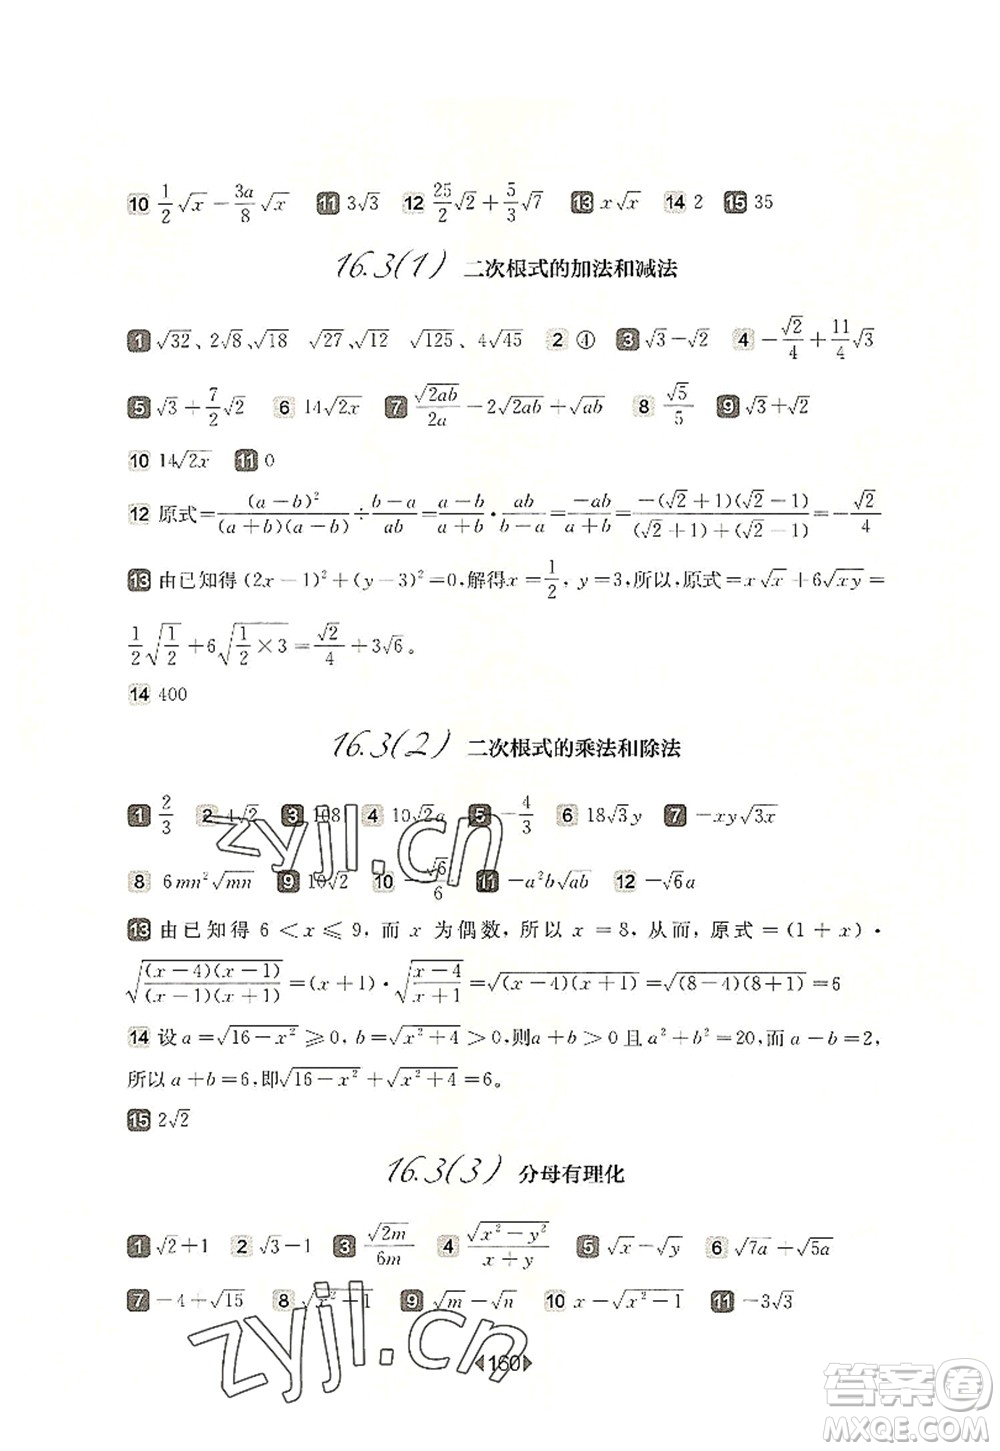 10 1/2√x − 3a/8√x 11 3√3 12 25/2√2 + 5/3√7 13 x√x 14 2 15 35
16.3(1) 二次根式的加法和减法
1 √32、2√8、√18 √27、√12 √125、4√45 2 ④ 3 √3−√2 4 −√2/4 + 11/4√3
5 √3 + 7/2√2 6 14√(2x) 7 √(2ab)/(2a) − 2√(2ab) + √(ab) 8 √5/5 9 √3+√2
10 14√(2x) 11 0
12 原式=(a−b)²/((a+b)(a−b)) ÷ (b−a)/(ab) = (a−b)/(a+b) · ab/(b−a) = −ab/(a+b) = −(√2+1)(√2−1)/((√2+1)+(√2−1)) = −√2/4
13 由已知得 (2x−1)²+(y−3)²=0,解得x=1/2, y=3,所以,原式=x√x+6√(xy)=
1/2√(1/2)+6√(1/2×3)=√2/4+3√6。
14 400
16.3(2) 二次根式的乘法和除法
1 2/3 2 4√2 3 108 4 10√2a 5 −4/3 6 18√3y 7 −xy√(3x)
8 6mn²√(mn) 9 10√2 10 −√6/6 11 −a²b√(ab) 12 −√6a
13 由已知得 6<x≤9, 而 x 为偶数, 所以 x=8, 从而, 原式=(1+x)·
√((x−4)(x−1)/((x−1)(x+1)))=(x+1)·√((x−4)/(x+1))=√((x−4)(x+1))=√((8−4)(8+1))=6
14 设 a=√(16−x²)≥0,b=√(x²+4)>0,则a+b>0 且 a²+b²=20,而a−b=2,
所以 a+b=6,即√(16−x²)+√(x²+4)=6。
15 2√2
16.3(3) 分母有理化
1 √2+1 2 √3−1 3 √(2m)/(6m) 4 √(x²−y²)/(x+y) 5 √x−√y 6 √(7a)+√(5a)
7 −4+√15 8 √(x²+1) 9 √m−√n 10 x−√(x²−1) 11 −3√3
160
zyjl.cn
zyjl.cn
答案圈
MXQE.COM